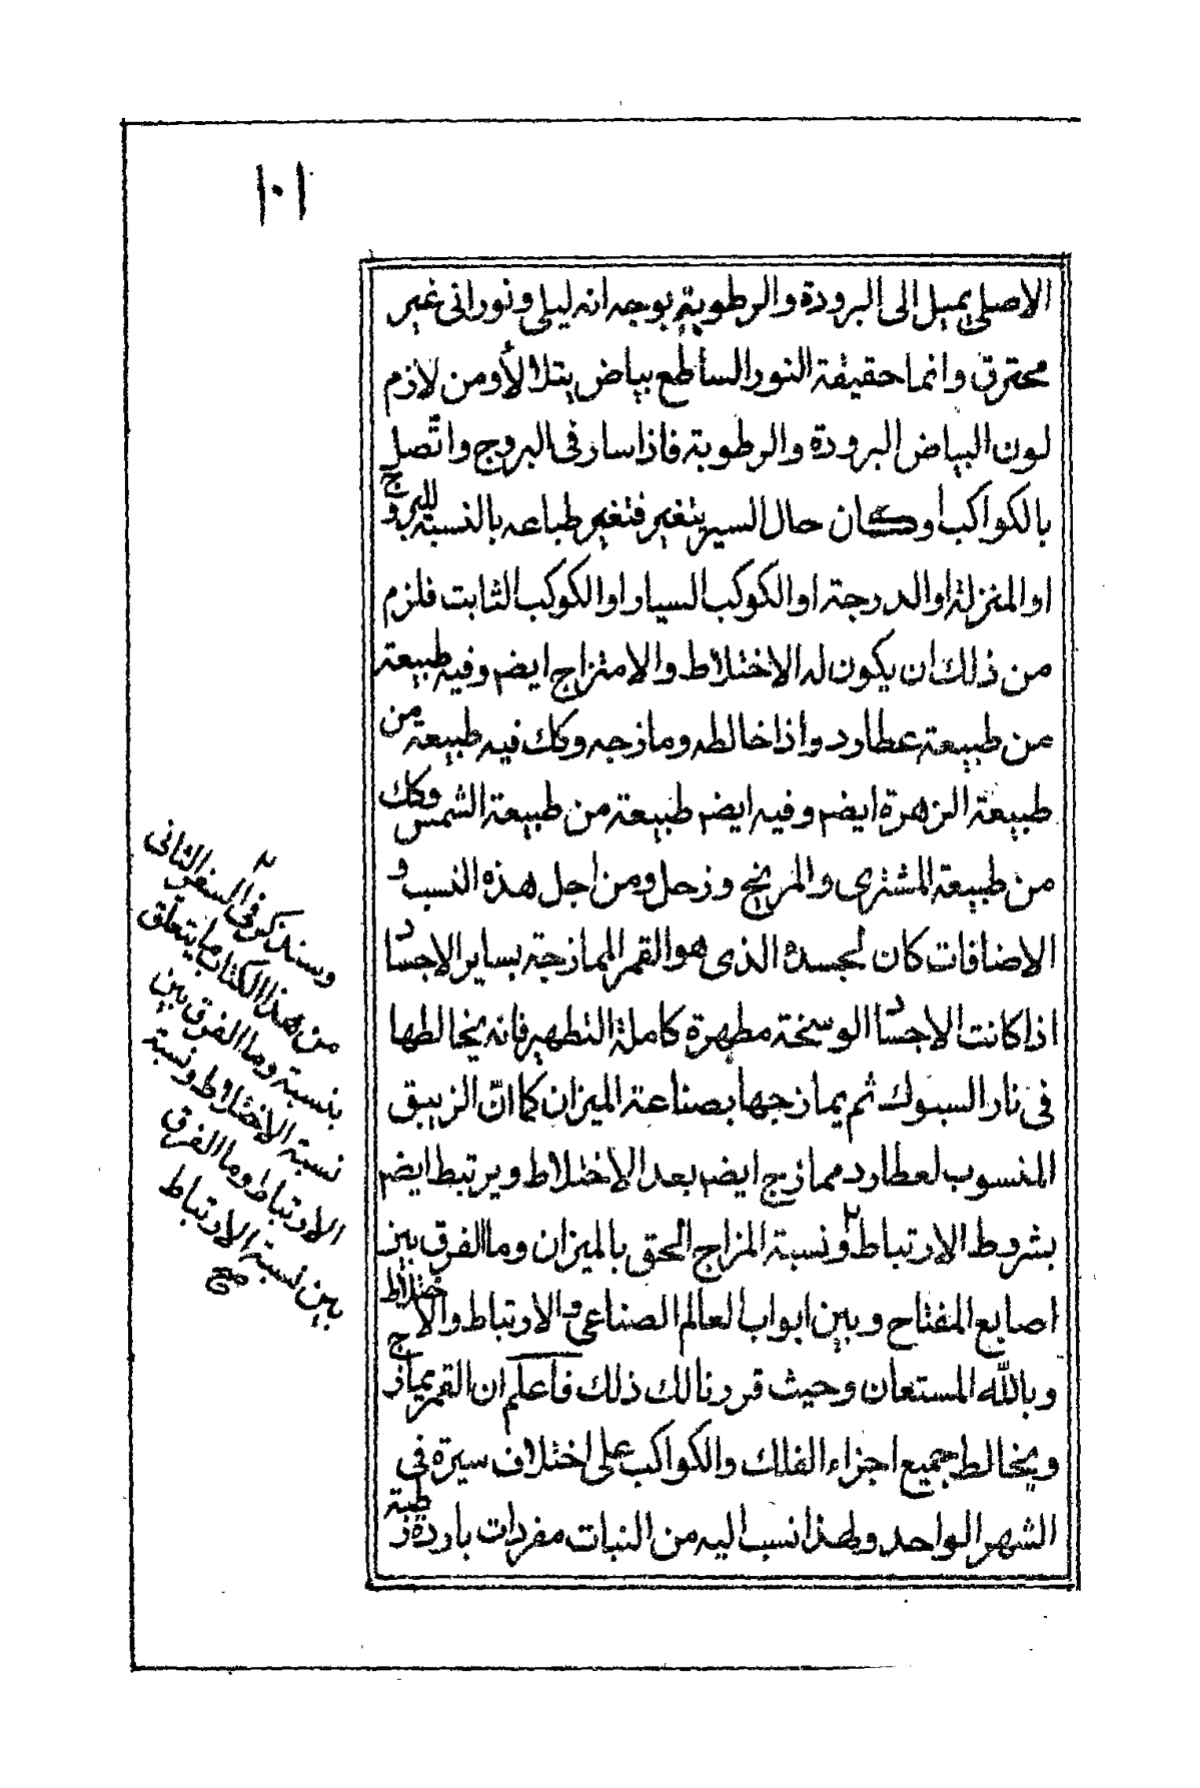 ١٠١
الاصلى يميل الى البرودة والرطوبة بوجه انه ليلى ونورانى غير
محترق وانما حقيقة النور الساطع بياض يتلالأ ومن لازم
لون البياض البرودة والرطوبة فاذا سار فى البروج واتّصل
بالكواكب اوكان حال السير يتغير فتغير طباعه بالنسبة للبروج
او المنزلة او الدرجة او الكوكب السيار او الكوكب الثابت فلزم
من ذلك ان يكون له الاختلاط والامتزاج ايضم وفيه طبيعة
من طبيعة عطارد واذا خالطه ومازجه وكك فيه طبيعة من
طبيعة الزهرة ايضم وفيه ايضم طبيعة من طبيعة الشمس وكك
من طبيعة المشترى والمريخ وزحل ومن اجل هذه النسب و
الاضافات كان لجسده الذى هو القمر الممازجة بساير الاجساد
اذا كانت الاجساد الوسخة مطهرة كاملة التطهير فانه يخالطها
فى نار السبوك ثم يمازجها بصناعة الميزان كما انّ الزيبق
المنسوب لعطارد ممازج ايضم بعد الاختلاط ويرتبط ايضم
بشروط الارتباط ٢ ونسبة المزاج الحق بالميزان وما الفرق بين
اصابع المفتاح وبين ابواب العالم الصناعى والارتباط والاختلاط
وبالله المستعان وحيث قررنا لك ذلك فاعلم ان القمر يمازج
ويخالط جميع اجزاء الفلك والكواكب على اختلاف سيرة فى
الشهر الواحد ولهذا نسب اليه من النبات مفردات باردة رطبة
٢
وسنذكر فى السفر الثانى
من هذا الكتاب ما يتعلق
بنسبة وما الفرق بين
نسبة الاختلاط ونسبة
الارتباط وما الفرق
بين نسبة الارتباط
صح